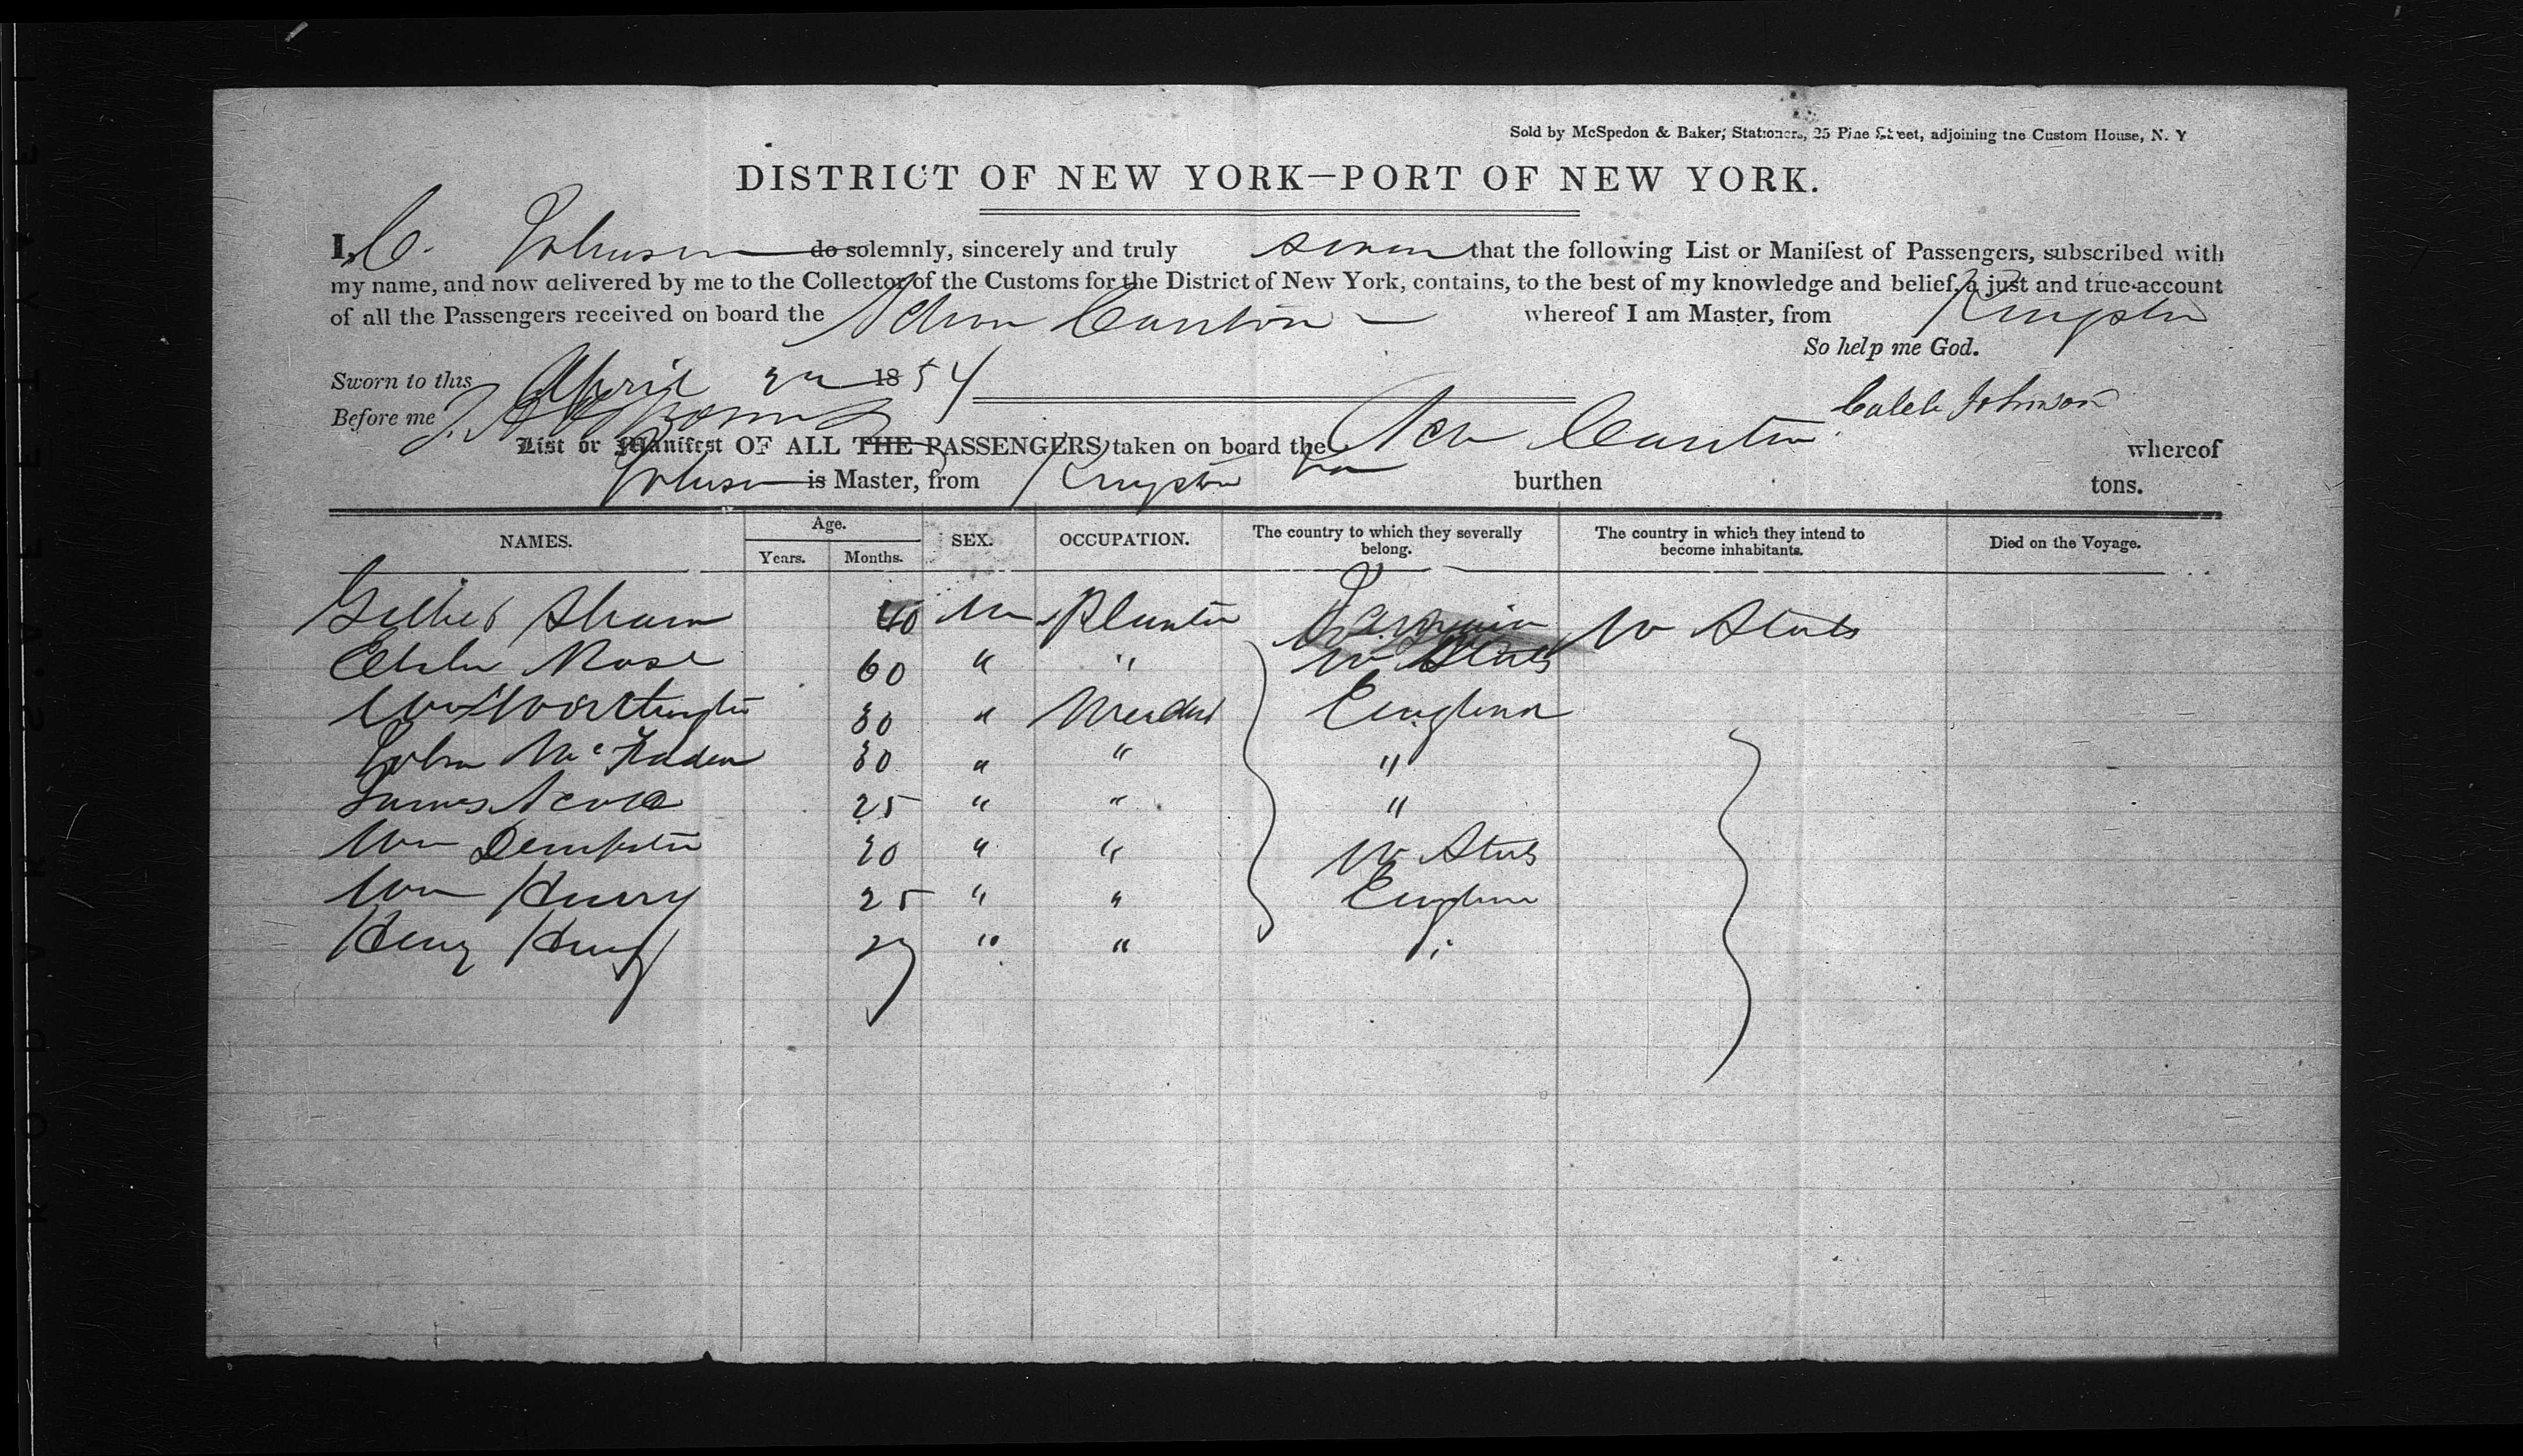 Sold by McSpedon & Baker, Stationers, 25 Pine Street, adjoining the Custom House, N. Y
DISTRICT OF NEW YORK—PORT OF NEW YORK.
I, C. Johnson do solemnly, sincerely and truly swear that the following List or Manifest of Passengers, subscribed with
my name, and now delivered by me to the Collector of the Customs for the District of New York, contains, to the best of my knowledge and belief, a just and true account
of all the Passengers received on board the Schr Canton whereof I am Master, from Kingston
So help me God.
Sworn to this April 18 54
Before me
Caleb Johnson
List or Manifest OF ALL THE PASSENGERS taken on board the Sch Canton whereof
Johnson is Master, from Kingston Ja burthen tons.
NAMES. Age. Years. Months. SEX. OCCUPATION. The country to which they severally belong. The country in which they intend to become inhabitants. Died on the Voyage.
40 M Planter Jamaica U States
Rose 60 " " U States
Wm Worthington 30 " England
John McFadden 30 " " "
James 25 " " "
Wm Dempster 30 " " U States
Wm Henry 25 " " England
Henry 27 " " "